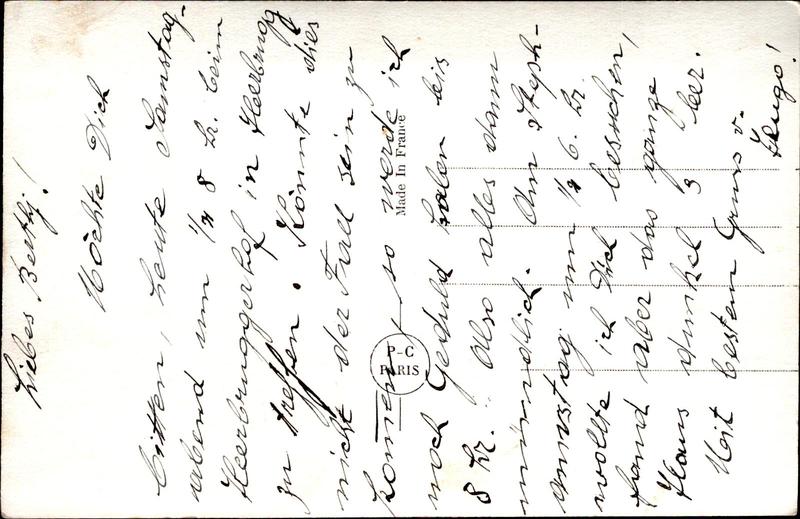 Liebes Berthy!
Möchte Dich
bitten, heute Samstag-
abend um ½ 8 Hr. beim
Heerbruggerhof in Heerbrugg
zu treffen. Könnte dies
nicht der Fall sein zu
kommen, so werde ich
noch Geduld haben bis
8 Hr. Also alles dann
mündlich. Am Steph-
anustag um ½ 6 Hr.
wollte ich Dich besuchen,
fand aber das ganze
Haus dunkel & leer.
Mit bestem Gruss v.
Hugo!
Made In France
P-C
PARIS